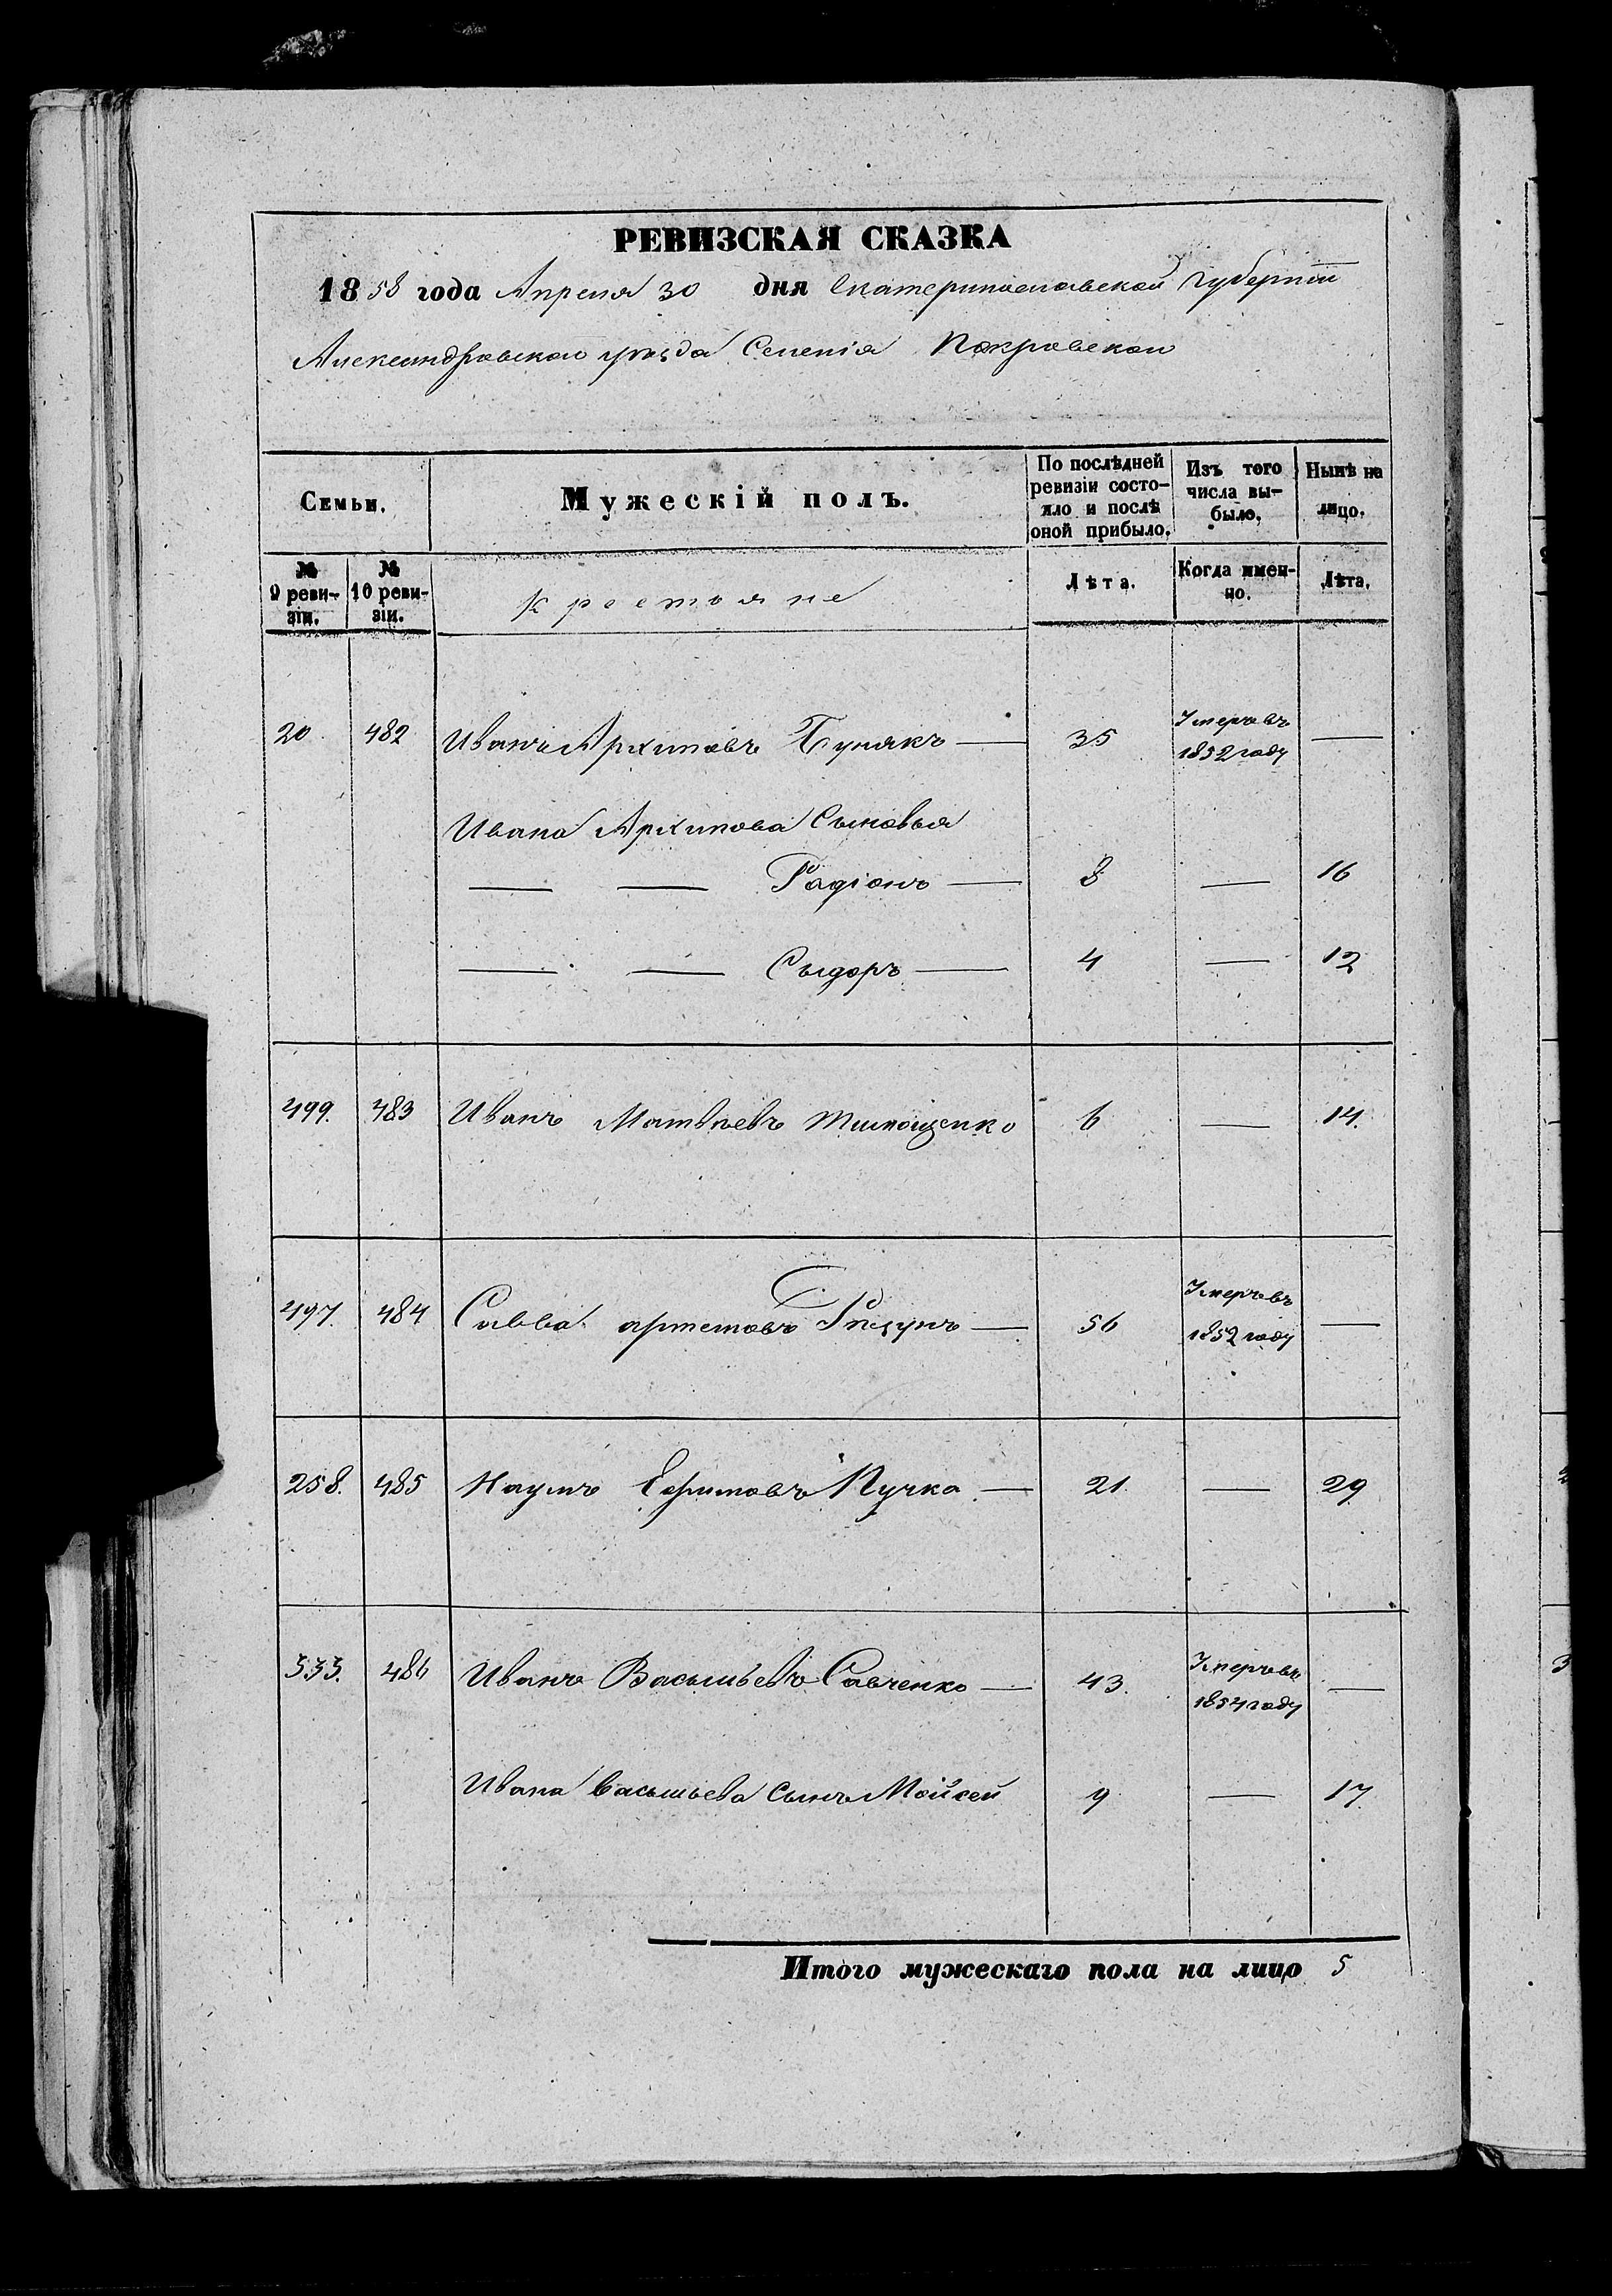 РЕВИЗСКАЯ СКАЗКА
1858 года Апреля 30 дня Екатеринославской Губернiи
Александровскаго уѣзда Селенiя Покровскаго
Семьи.
Мужескiй полъ.
По послѣдней ревизiи состо-яло и послѣ оной прибыло.
Изъ того числа вы-было.
Нынѣ на лицо.
№ 9 реви-зiи.
№ 10 реви-зiи.
Крестяне
Лѣта.
Когда имен-но.
Лѣта.
20 482 Иванъ Архиповъ Бунякъ — 35 Умеръ въ 1852 году —
Ивана Архипова Сыновья
— — Радiонъ — 8 — 16
— — Сыдоръ — 4 — 12
499. 483 Иванъ Матвѣевъ Тимощенко 6 — 14.
497. 484 Савва артемовъ Рѣзунъ — 56 Умеръ въ 1852 году —
258. 485 Наумъ Ефимовъ Пучка — 21. — 29
533. 486 Иванъ Васильевъ Савченко — 43. Умеръ въ 1854 году —
Ивана Васыльева Сынъ Мойсей 9 — 17.
Итого мужескаго пола на лицо 5